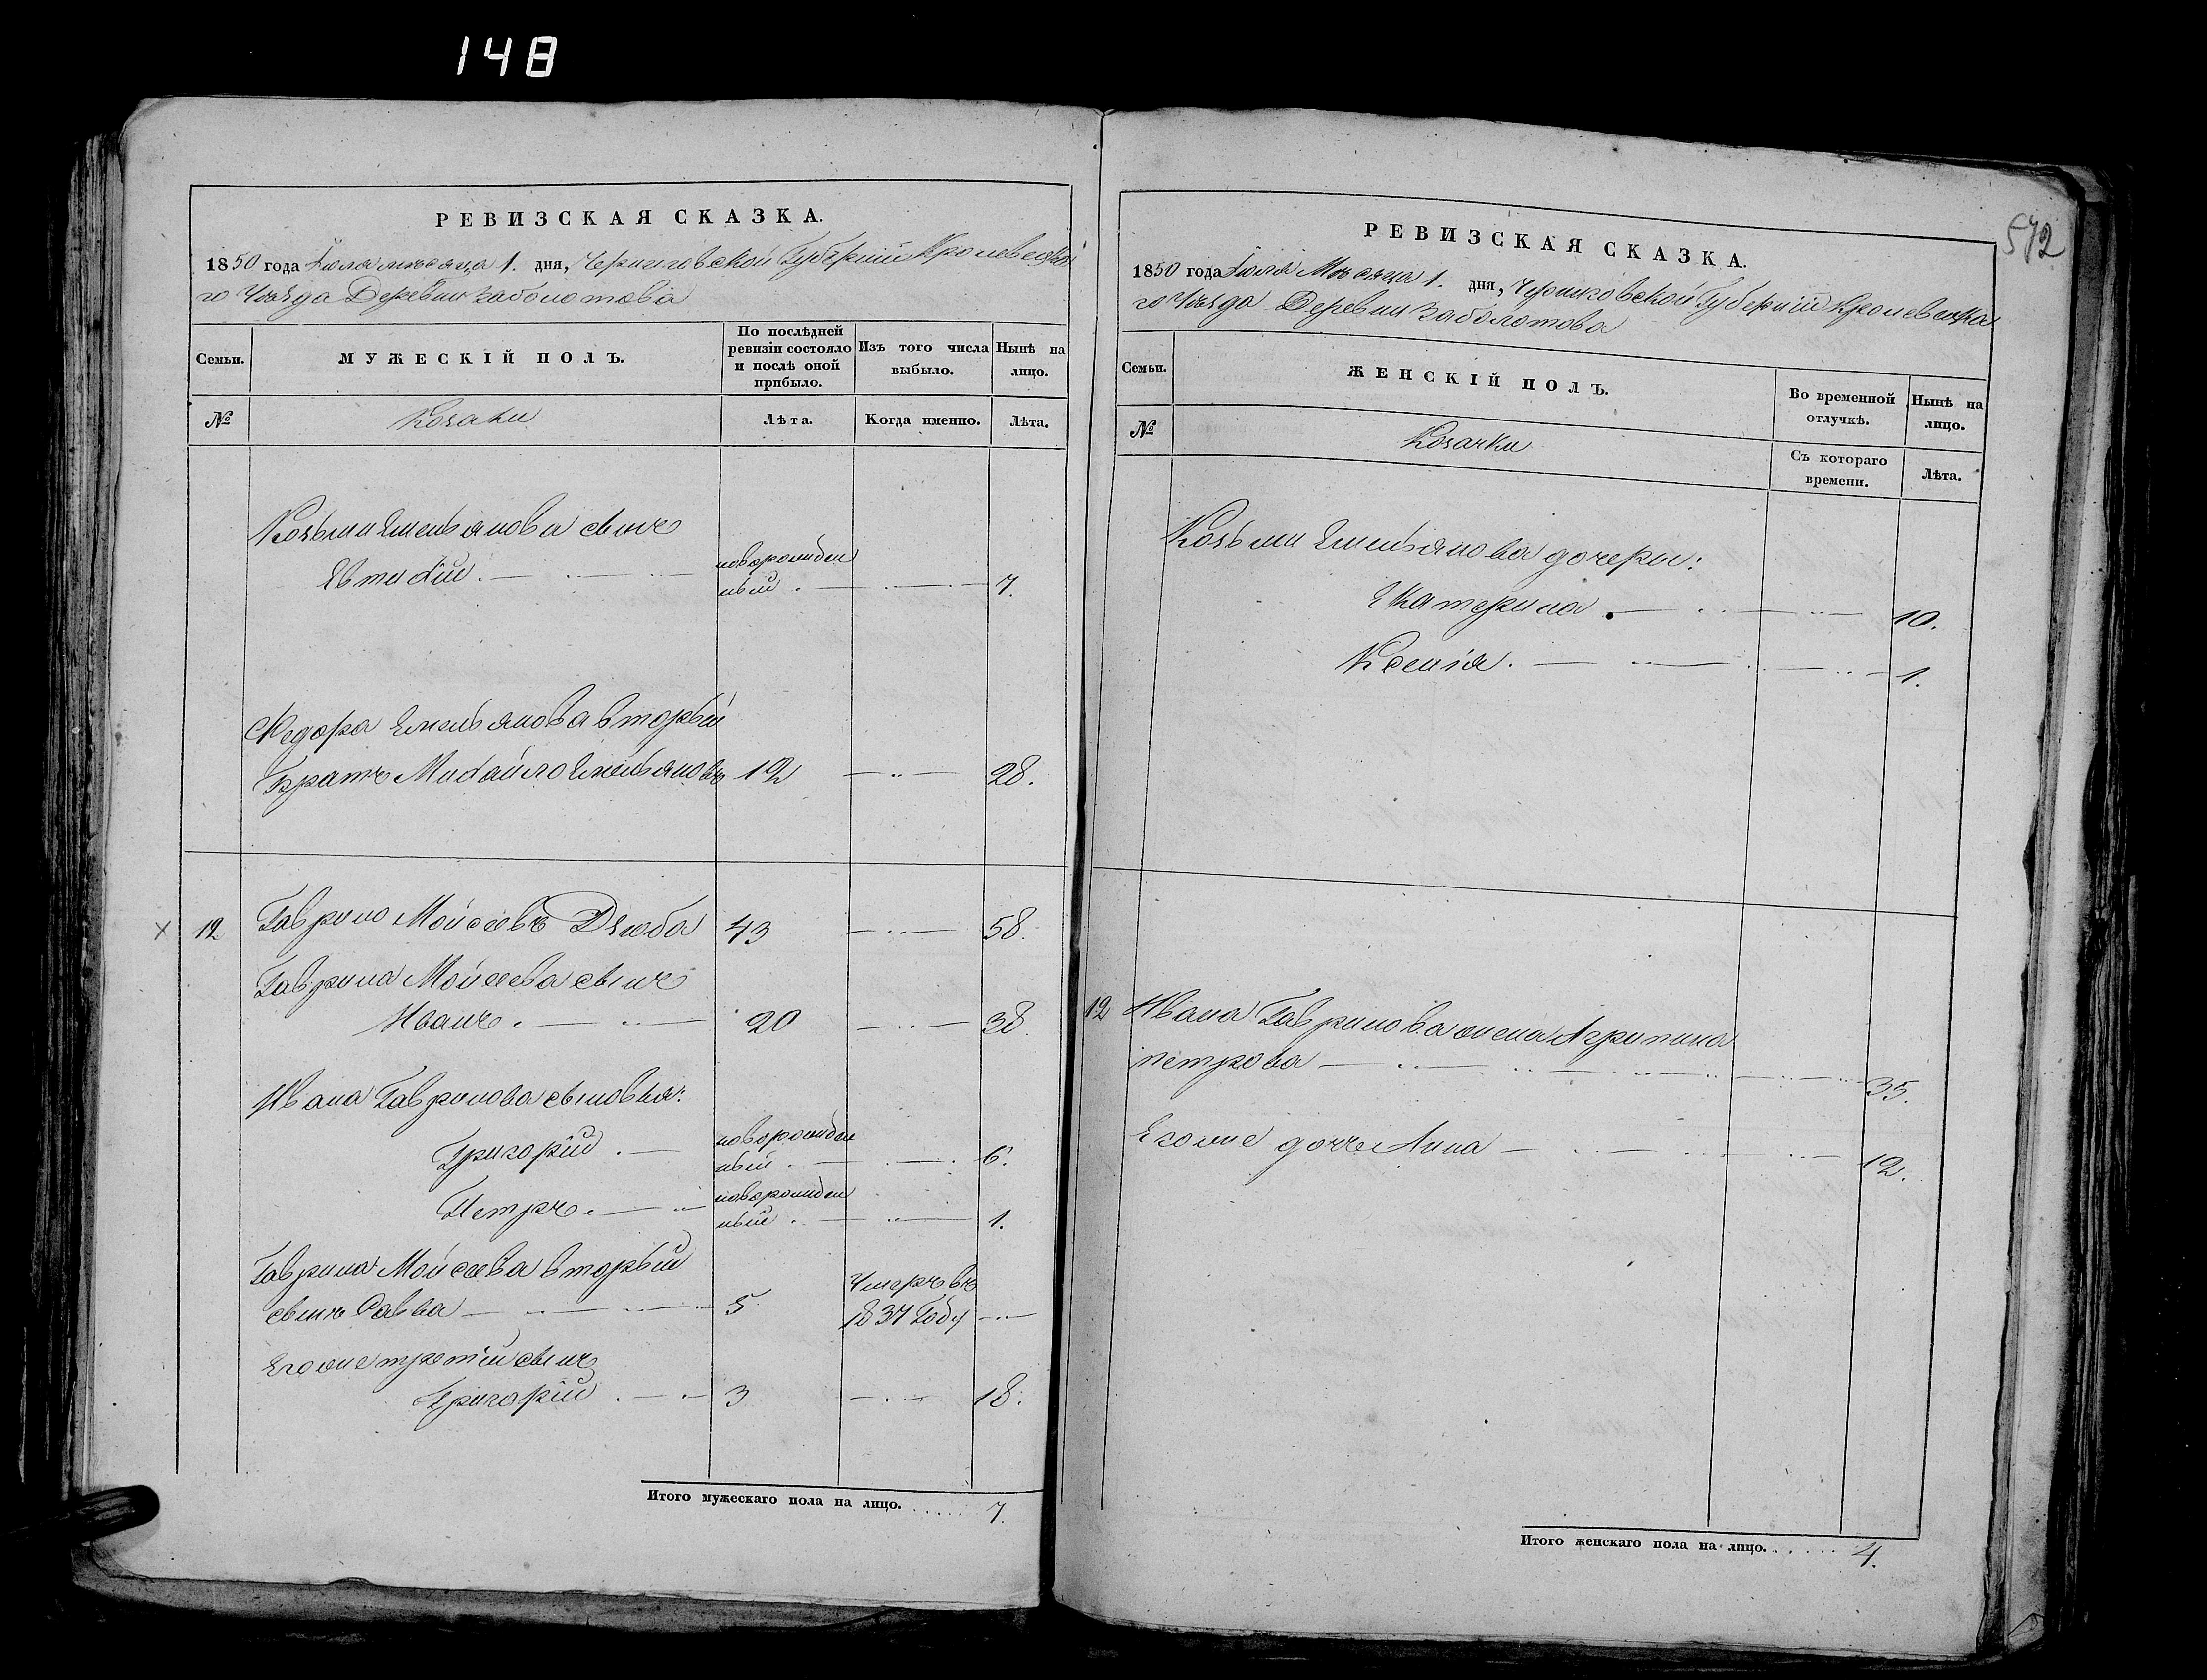 148
РЕВИЗСКАЯ СКАЗКА.
1850 года Іюля мѣсяца 1. дня, Черниговской Губерніи Кролевецка
го Уѣзда Деревни Заболотова
Семьи.
МУЖЕСКІЙ ПОЛЪ.
По послѣдней
ревизіи состояло
и послѣ оной
прибыло.
Изъ того числа
выбыло.
Нынѣ на
лицо.
№
Козаки
Лѣта.
Когда именно.
Лѣта.
Козьми Емельянова сынъ
Евтихій . новорожден
ный . 7.
Федора Емельянова вторый
Братъ Михайло Емельяновъ 12 28.
12 Гаврило Мойсеевъ Дзюба 43 58.
Гаврила Мойсеева сынъ
Иванъ . 20 38.
Ивана Гаврилова сыновья:
Григорій . новорожден
ный . 6.
Петръ . новорожден
ный . 1.
Гаврила Мойсеева вторый
сынъ Савва 5 Умеръ въ
1837 Году
Егоже третій сынъ
Григорій . 3 18.
Итого мужескаго пола на лицо. . . . . . 7.
572
РЕВИЗСКАЯ СКАЗКА.
1850 года Іюля Мѣсяца 1. дня, Черниговской Губерніи Кролевецка
го Уѣзда Деревни Заболотова
Семьи.
ЖЕНСКІЙ ПОЛЪ.
Во временной
отлучкѣ.
Нынѣ на
лицо.
№
Козачки
Съ котораго
времени.
Лѣта.
Козьми Емельянова дочери:
Екатерина . 10.
Ксенія . 1.
12 Ивана Гаврилова жена Агрипина
петрова 35.
Егоже дочъ Анна 12.
Итого женскаго пола на лицо. . . . . . 4.